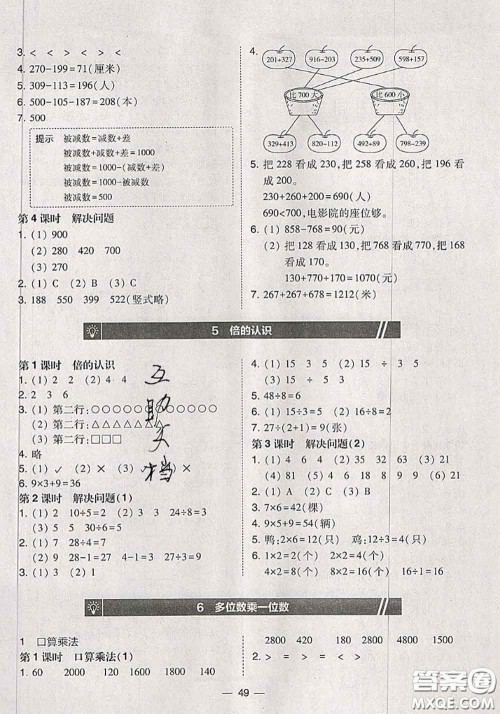 3. < < < < > <
4. 270-199=71(厘米)
5. 309-113=196(人)
6. 500-105-187=208(本)
7. 500
提示 被减数=减数+差
被减数+减数+差=1000
被减数=1000-(减数+差)
被减数=1000-被减数
被减数=500
第4课时 解决问题
1. (1) 900
(2) 280 420 700
(3) 270
2. (1) C (2) B (3) C
3. 188 550 399 522(竖式略)
4.
201+327 316+203 235+509 598+157
比700大 比600小
329+413 820-112 492+89 844-263
5. 把228看成230,把258看成260,把196看成200。
230+260+200=690(人)
690<700,电影院的座位够。
6. (1) 858-768=90(元)
(2) 把128看成130,把768看成770,把168看成170。
130+770+170=1070(元)
7. 267+267+678=1212(米)
5 倍的认识
第1课时 倍的认识
1. (1) 2 2 (2) 4 4
2. 2 3 6
3. (1) 第二行:○○○○○○○○○○○○
(2) 第二行:△△△△△△
(3) 第二行:□□□
4. 略
5. (1) ✓ (2) × (3) × (4) ×
6. 9×3+9=36
第2课时 解决问题(1)
1. (1) 2 10÷5=2 (2) 3 3 24÷8=3
(3) 5 30÷6=5
2. (1) 7 28÷4=7
(2) 9 28-1=27 4-1=3 27÷3=9
3. (1) A (2) B (3) C
互助文档
4. (1) 15 3 5 (2) 15 ÷ 3 5
(3) 15 3 5
5. 48÷8=6
6. (1) 15÷3=5 (2) 16÷8=2
7. 27÷(2+1)=9(张)
第3课时 解决问题(2)
1. (1) 15 (2) 4 5 20 (3) 6 2 12
(4) 81 (5) 4 6 18 8 9 9 (6) 21
2. (1) A (2) C (3) B
3. 7×6=42(棵)
4. 9×5+9=54(辆)
5. 鸭:2×6=12(只) 鸡:12×3=36(只)
6. 1×2=2(个) 2×2=4(个) 4×2=8(个)
4×2=8(个) 8×2=16(个) 16÷8=2
6 多位数乘一位数
1 口算乘法
第1课时 口算乘法(1)
1. 60 2000 120 1600 1800 140
2800 420 1500 2800 4000
2. > = > < > <
49
答案圈
MXQE.COM